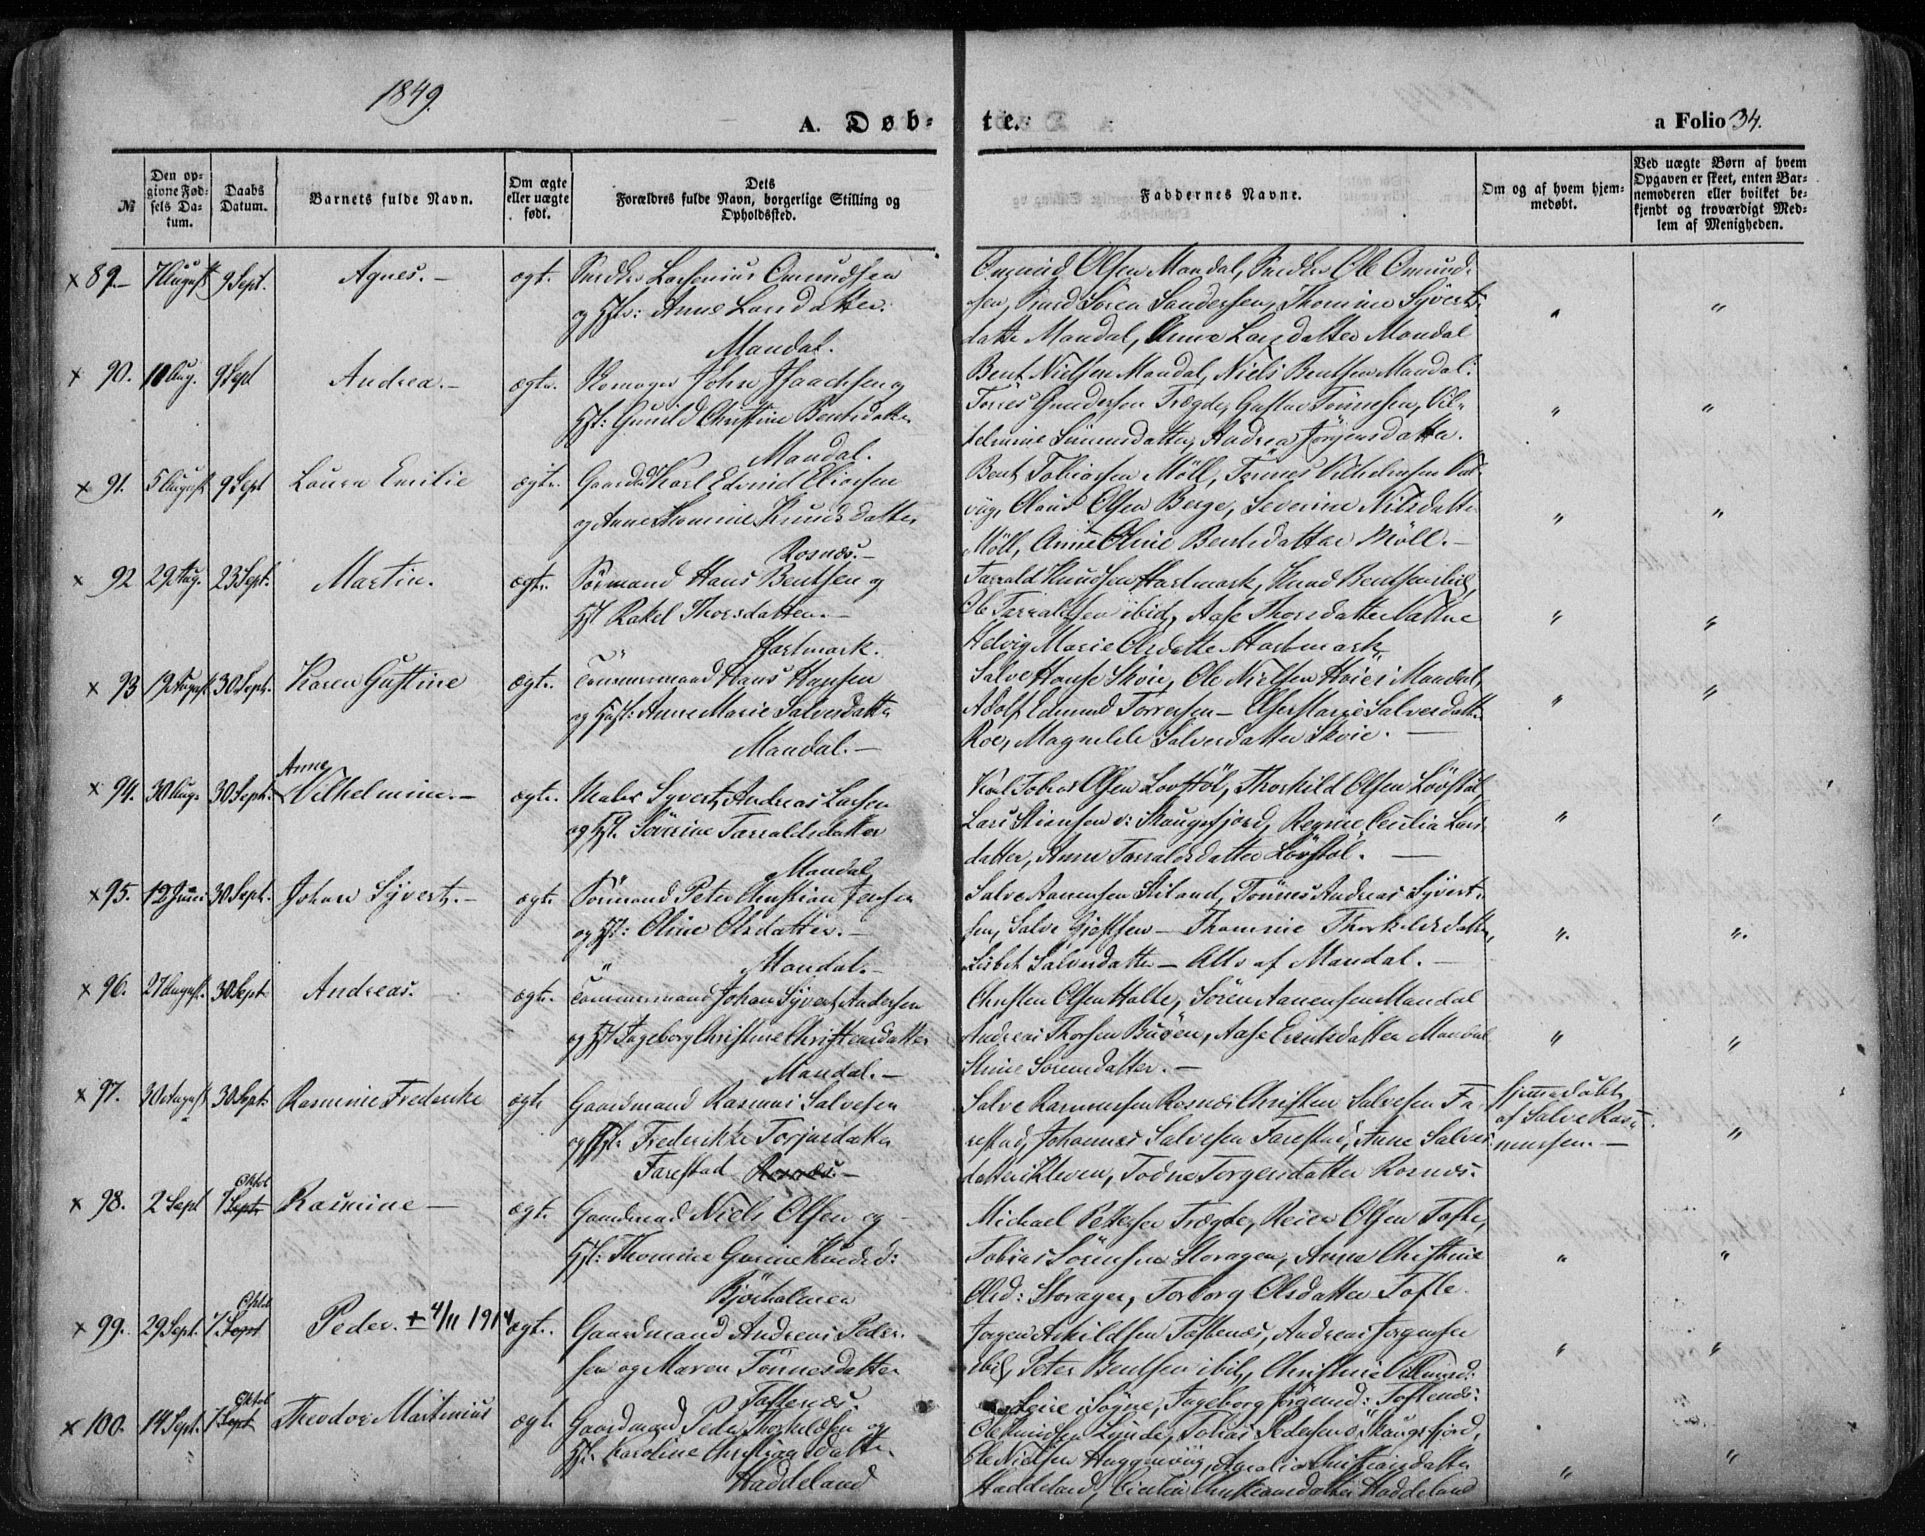 1849.
A. Døb-
te.
a Folio 34.
№
Den op-
givne Fød-
sels Da-
tum.
Daabs
Datum.
Barnets fulde Navn.
Om ægte
eller uægte
født.
Dets
Forældres fulde Navn, borgerlige Stilling og
Opholdssted.
Faddernes Navne.
Om og af hvem hjem-
medøbt.
Ved uægte Børn af hvem
Opgaven er skeet, enten Bar-
nemoderen eller hvilket be-
kjendt og troværdigt Med-
lem af Menigheden.
x 89. 7 August 9 Sept. Agnes. — ægt. Omundsen
og Hst: Anne Larsdatter.
Mandal.
Omund Olsen Mandal, Ole Omund-
sen, Søren Sandersen, Thomine Syverts-
datter Mandal, Anne Larsdatter Mandal
x 90. 10 Aug. 9 Sept Andrea. — ægte. John Isaachsen og
Hst: Gunild Christine Bentsdatter
Mandal.
Bent Nielsen Mandal, Niels Bentsen Mandal.
Gundersen Trægde, Gustav Tønnesen, Vil-
helmine Simensdatter, Andrea Jørgensdatter.
x 91. 5 August 9 Sept Laura Emilie ægte. Karl Edvind Eliasen
og Anne Thomine Knudsdatter
Rosnæs. —
Bent Tobiassen Møll, Tønnes Vilhelmsen
Olaus Olsen Berge, Severine Nilsdatter
Møll, Anne Oline Bentsdatter Møll. —
x 92 29 Aug. 23 Sept. Martin. ægte. Sømand Hans Bentsen og
Hst Rakel Thorsdatter. —
Hartmark.
Tarrald Knudsen Hartmark, Knud Bentsen ibid,
Ole Tarraldsen ibid, Aase Thorsdatter Valtne
Helvig Marie Olsdatter Hartmark
x 93 19 August 30 Sept. Karen Gustine ægte. Tømmermand Hans Hansen
og Hust: Anne Marie Salvesdatter
Mandal. —
Salve Hansen Skoie, Ole Nielsen Mandal,
Adolf Edmund Torresen — Salvesdatter
Roe, Magnilde Salvesdatter Skoie. —
Anne
x 94. 30 Aug. 30 Sept. Vilhelmine. — ægte. Maler Syvert Andreas Larsen
og Hst. Sørine Tarraldsdatter
Mandal
Karl Tobias Olsen Løvstøl, Thorkild Olsen Løvstøl,
Lars Stiansen Skaugsfjord, Regine Cecilia Lars-
datter, Anne Tarraldsdatter Løvstøl. —
x 95. 12 Juni 30 Sept. Johan Syvert. — ægte Sømand Peter Christian Jensen
og Hst: Oline Olsdatter. —
Mandal. —
Salve Aanensen Stiland, Tønnes Andreas Syvert-
sen, Salve — Thomine Thorkildsdatter,
Lisbet Salvesdatter — Alle af Mandal. —
x 96. 27 August. 30 Sept Andreas. ægte. Tømmermand Johan Syvert Andersen
og Hst Ingeborg Christine Christensdatter
Mandal. —
Christen Olsen Halte, Søren Aanensen Mandal
Andreas Thorsen Buøen, Aase Mandal
Stine Sørensdatter. —
x 97. 30 August 30 Sept. Rasmine Frederike ægt Gaardmand Rasmus Salvesen
og Hst. Frederikke Torjusdatter
Farestad Rosnæs. —
Salve Rasmussen Rosnæs Christen Salvesen Fa-
restad, Johannes Salvesen Farestad, Anne Salves-
datter Kleven, Todne Torgersdatter Rosnæs.
Hjemmedøbt
af Salve Ras-
mussen. —
x 98. 2 Sept 7 Sept. Oktob Rasmine — ægt. Gaardmand Niels Olsen og
Hst: Thomine Gurine Knudsd:
Bjørholmen
Michael Pettersen Trægde, Reier Olsen Tofte,
Tobias Sørensen Storagen, Anna Christine
Olsd: Storagen, Torborg Olsdatter Tofte.
x 99. 29 Sept. 7 Sept Oktob Peder. + 4/11 1914 ægt. Gaardmand Andreas Peder-
sen og Maren Tønnesdatter
Toftenæs.
Jørgen Askildsen Toftenæs, Andreas Jørgensen
ibid, Peter Bentsen ibid, Christine
i Søgne, Ingeborg Jørgensd: Toftenæs.
x 100. 14 Sept. 7 Sept Oktob Theodor Martinius ægt. Gaardmand Peder Thorkildsen og
Hst. Karoline Christiansdatter
Haddeland
Ole Knudsen Lunde, Tobias Pedersen Skaugsfjord,
Ole Nielsen Christiansdatter
Haddeland, Cecilia Christiansdatter Haddeland